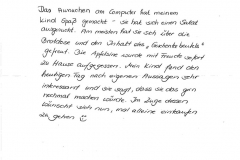 Das Aussuchen am Computer hat meinem
Kind Spaß gemacht – sie hat sich einen Salat
ausgesucht. Am meisten hat sie sich über die
Brotdose und den Inhalt des „Geschenkbeutels"
gefreut. Die Apfeltüte wurde mit Freude sofort
zu Hause aufgegessen. Mein Kind fand den
heutigen Tag nach eigenen Aussagen sehr
interessant und sie sagt, dass sie das gern
nochmal machen würde. Im Zuge dessen
wünscht sich nun, mal alleine einkaufen
zu gehen ☺